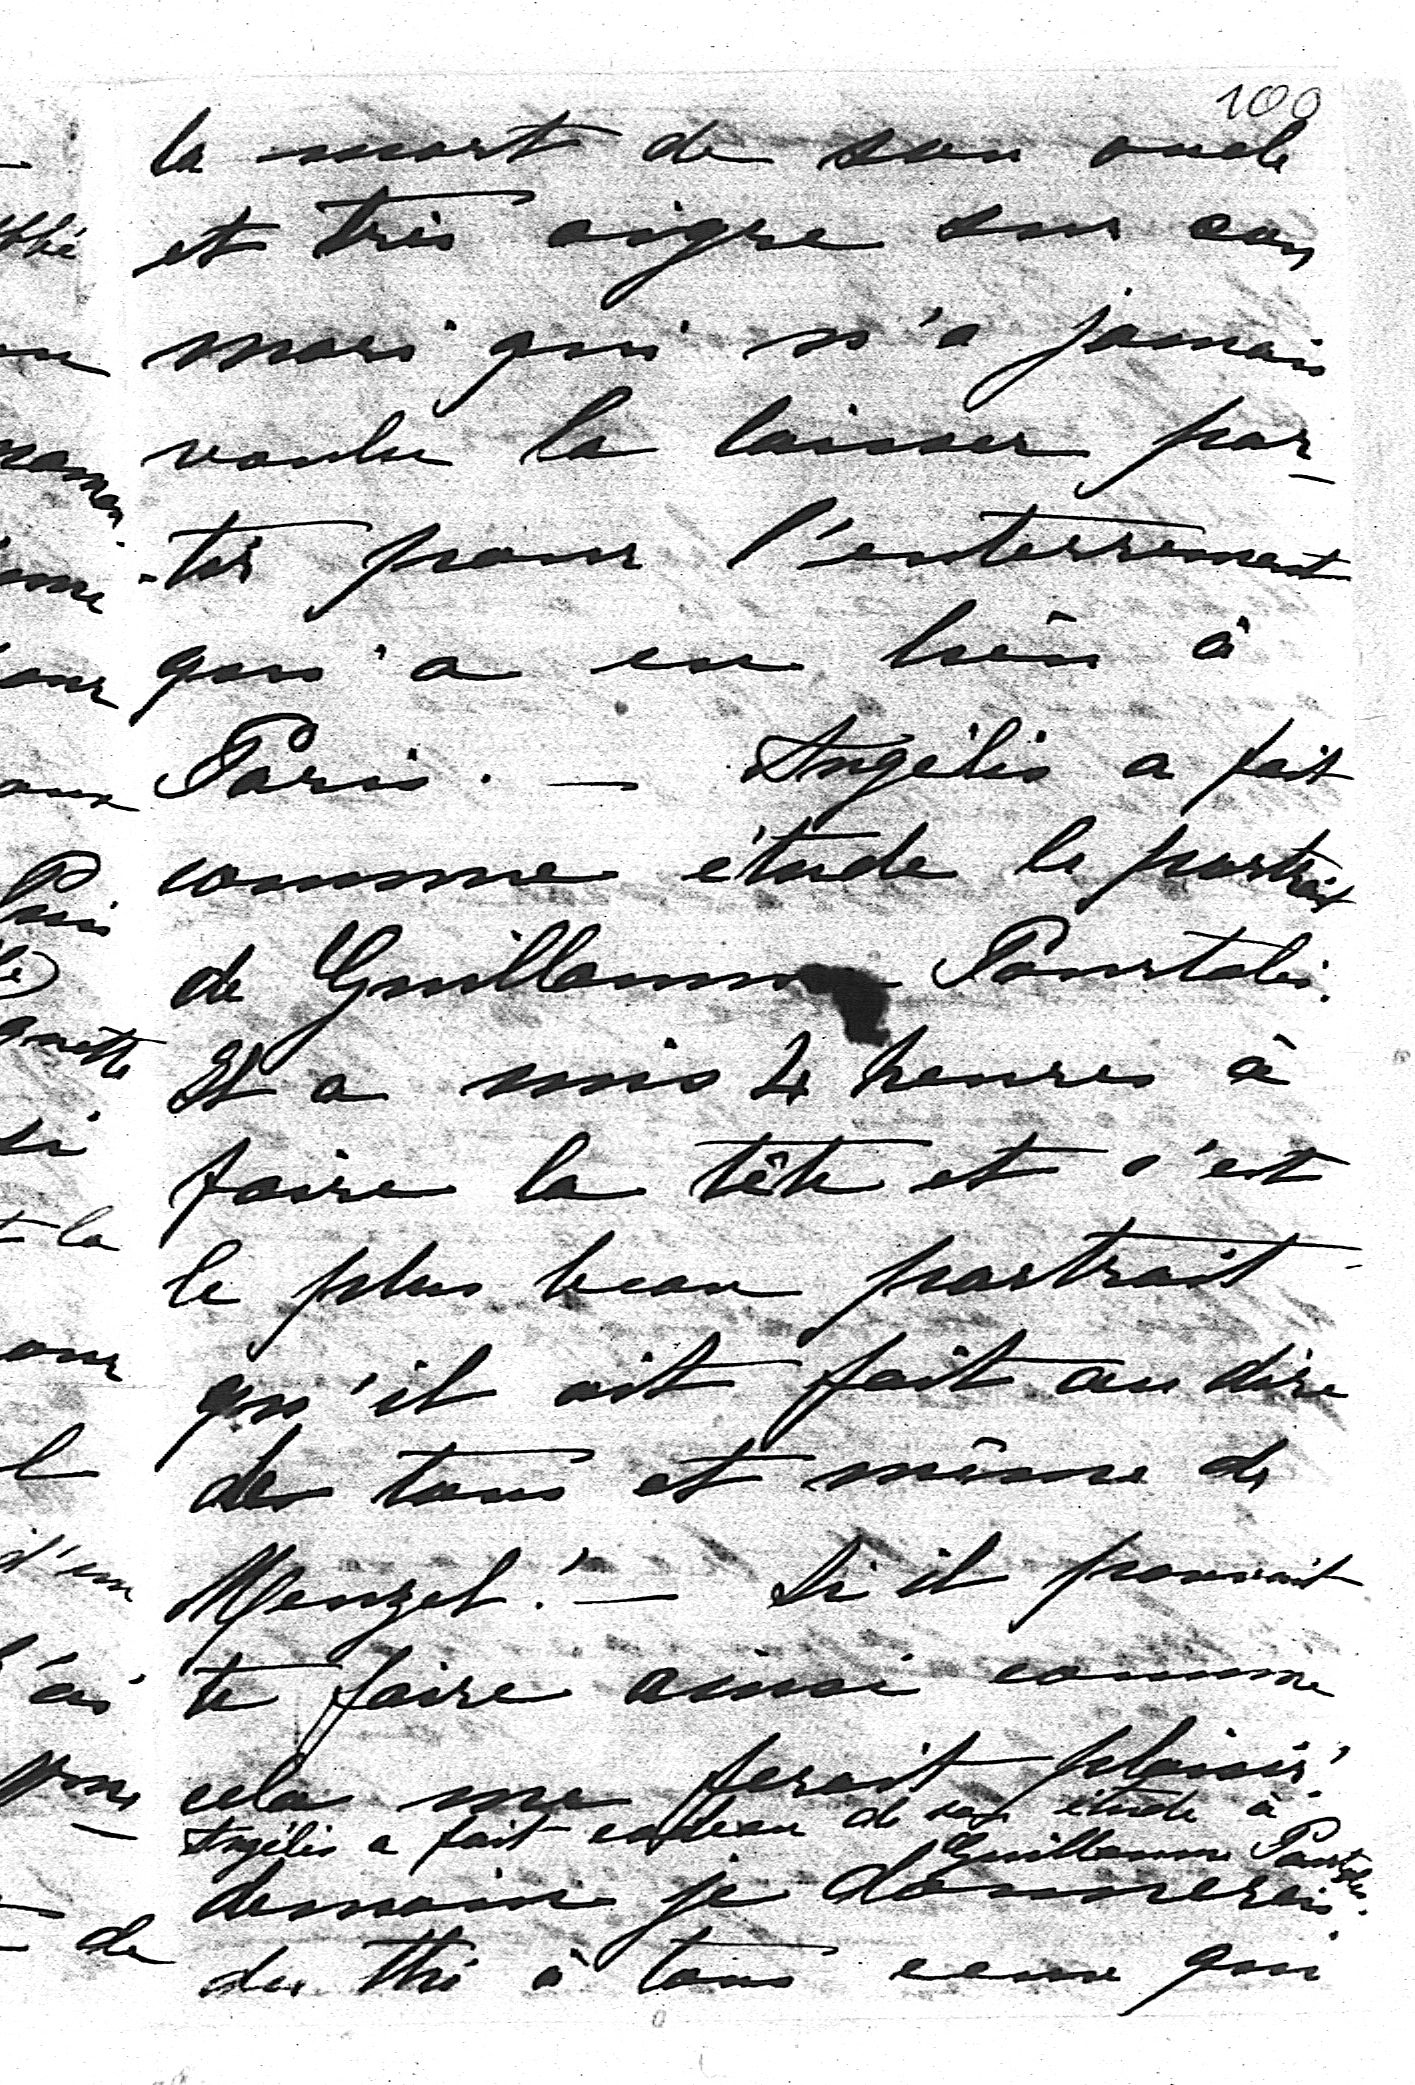 100
la mort de son oncle
et très aigre sur son
mari qui n'a jamais
voulu la laisser par-
-tir pour l'enterrement
qui a eu lieu à
Paris. — Angéli a fait
comme étude le portrait
de Guillaume Pourtalès.
Il a mis 4 heures à
faire la tête et c'est
le plus beau portrait
qu'il ait fait au dire
de tous et même de
Menzel! — Si il pouvait
te faire ainsi comme
cela me ferait plaisir!
Angéli a fait cadeau de son étude à
Guillaume Pourtalès.
demain je donnerai
du thé à tous ceux qui